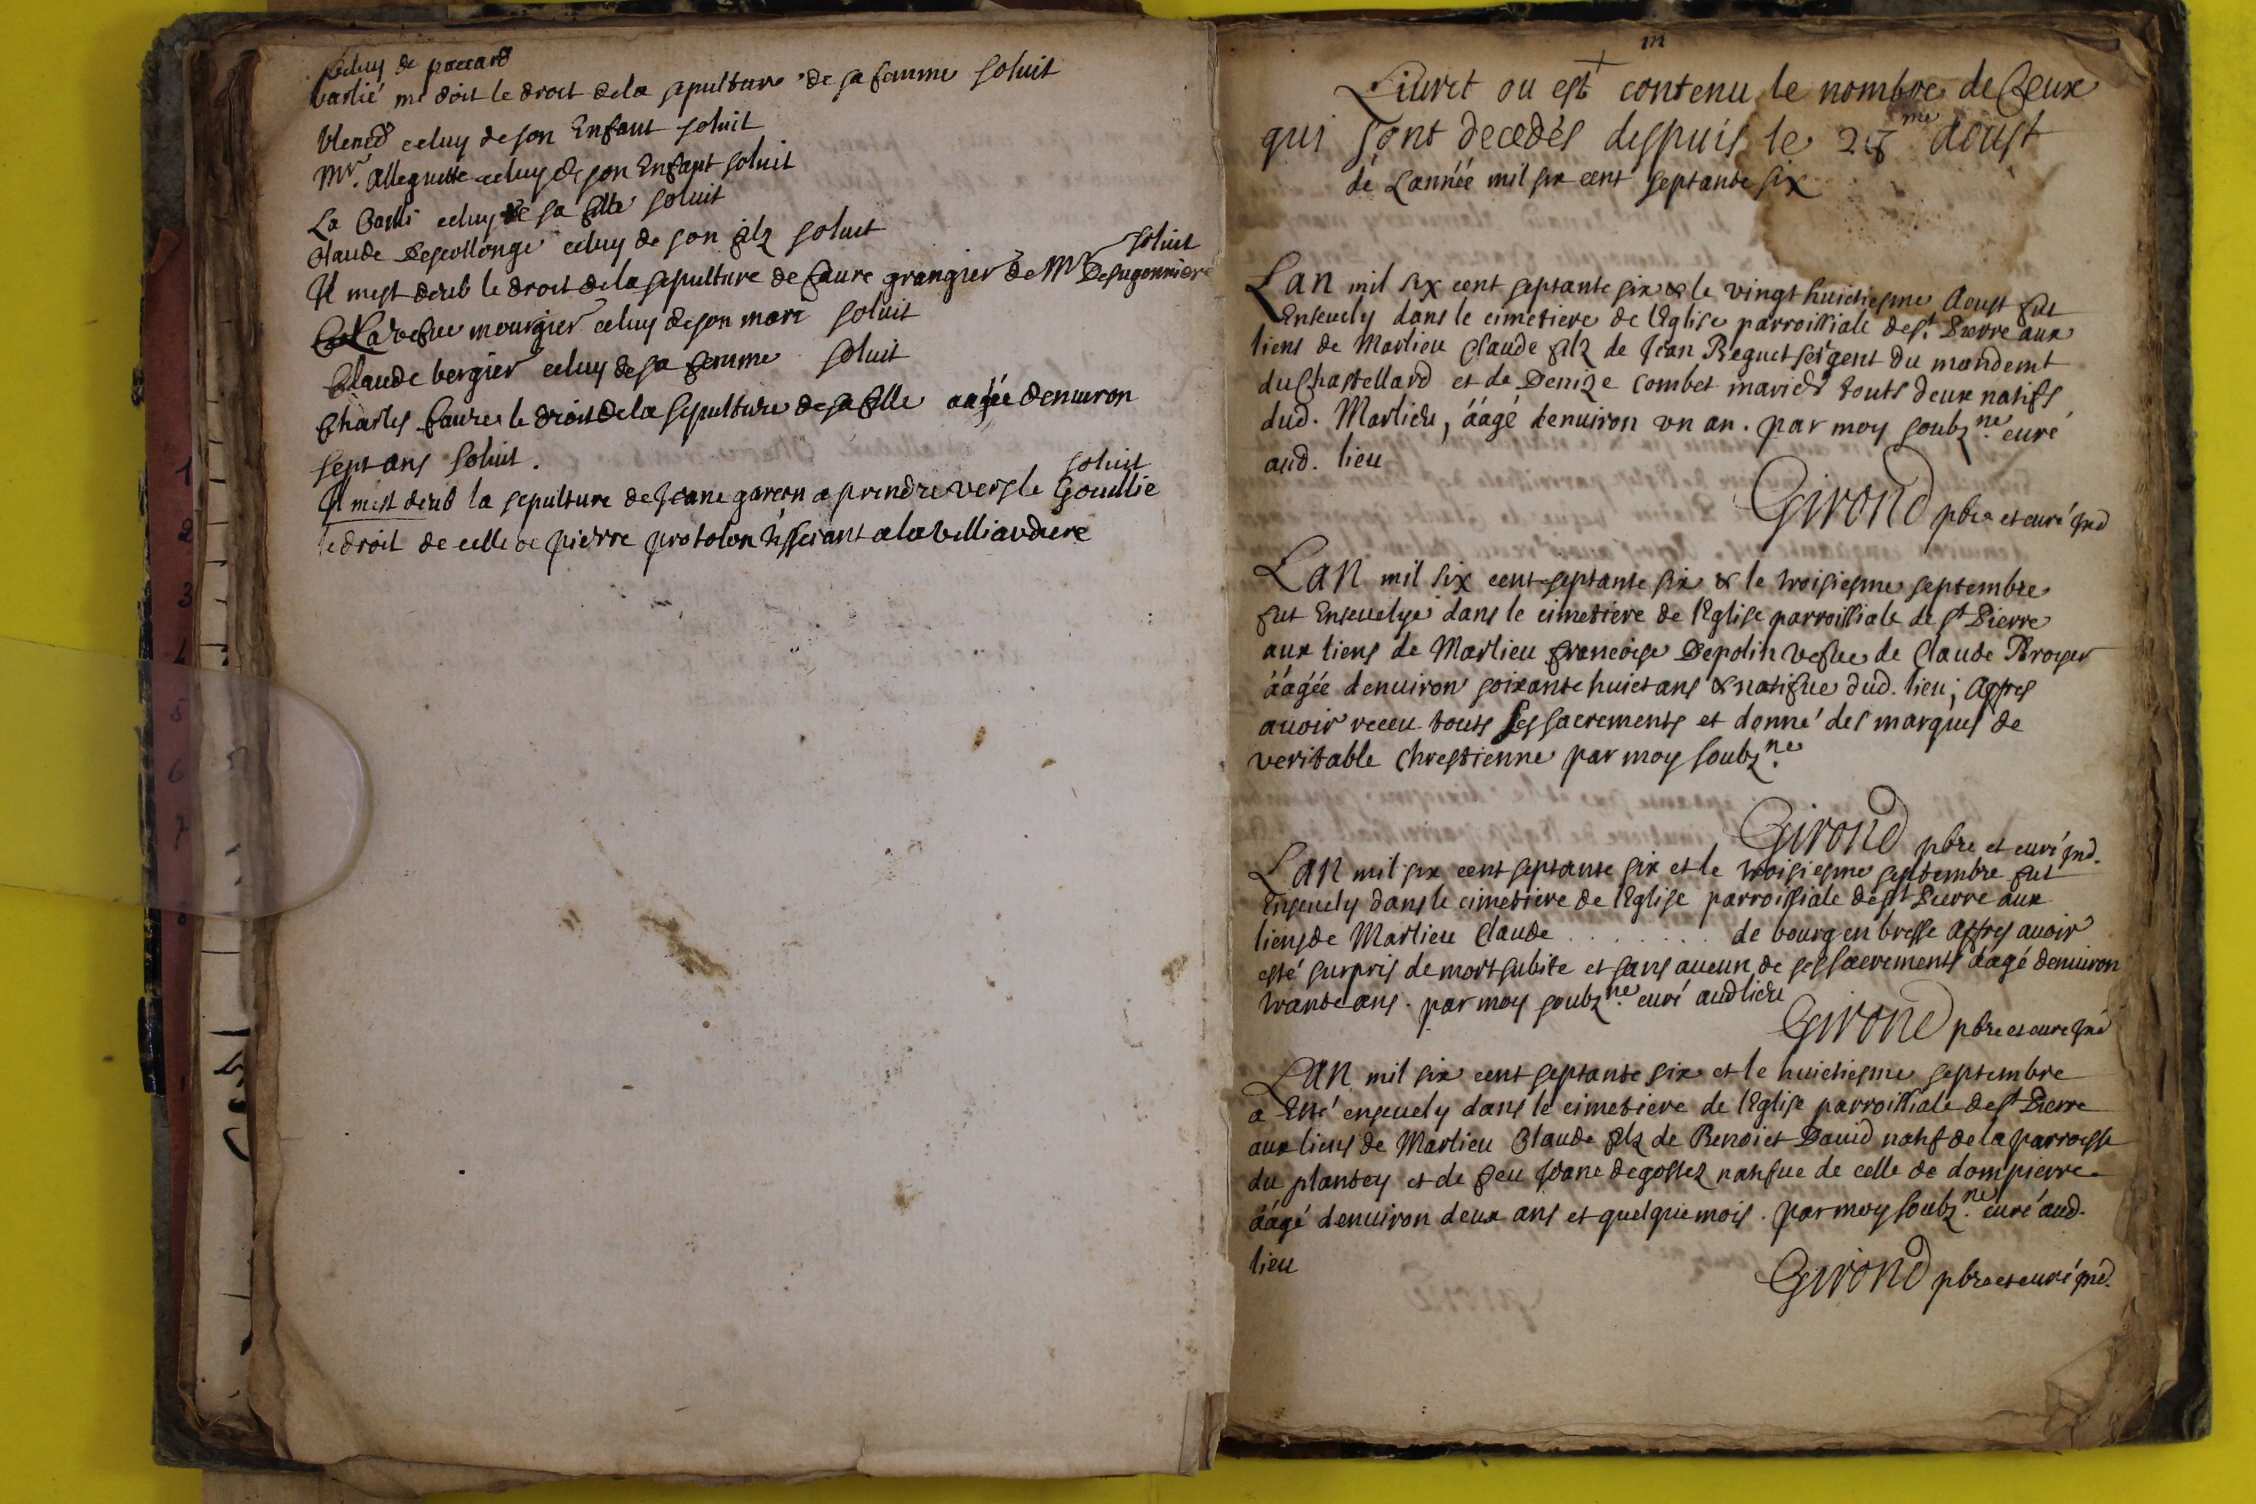 celuy de paccard
varlié me doit le droit dela sepulture de sa famme soluit
celuy de son Enfant soluit
Mr. Alleguette celuy de son Enfant soluit
La celuy de sa fille soluit
Claude Descollonge celuy de son filz soluit
soluit
Il mest deub le droit dela sepulture de faure grangier de Mr Desugonniere
La vefue mourgier celuy de son mari soluit
Claude bergier celuy de sa femme soluit
Charles faure le droit dela sepulture de sa fille aagée denuiron
sept ans soluit.
soluit
Il mest deub la sepulture de Jeane garern a prendre vers le Gouillie
le droit de celle de pierre protolon tisserant a la villiardiere
m
Liuret ou est contenu le nombre de Ceux
qui sont decedés despuis le 28me Aoust
de Lannéé mil six cent septante six
Lan mil six cent septante six & le vingt huictiesme Aoust fut
Enseuely dans le cimetiere de lEglise parroissiale de st. Pierre aux
liens de Marlieu Claude filz de Jean Reguet sergent du mandemt
du Chastellard et de Denize Combet mariéz touts deux natifs
dud. Marlieu, ââgé denuiron vn an. par moy soubz.ne curé
aud. lieu
Girond pbre et curé jnd
Lan mil six cent septante six & le troisiesme septembre
fut Enseuelye dans le cimetiere de lEglise parroissiale de st Pierre
aux liens de Marlieu francoise Depolin vefue de Claude Broyer
ââgéé denuiron soixante huict ans & natifue dud. lieu; Apres
auoir receu touts ses sacrements et donné des marques de
veritable Chrestienne par moy soubz.ne
Girond pbre et curé jnd.
Lan mil six cent septante six et le troisiesme septembre fut
Enseuely dans le cimetiere de lEglise parroissiale de st Pierre aux
liens de Marlieu Claude . . . . . . . . de bourg en bresse Apres auoir
esté surpris de mort subite et sans aucun de ses sacrements ââgé denuiron
trante ans. par moy soubz.ne curé aud lieu
Girond pbre et curé jnd
Lan mil six cent septante six et le huictiesme septembre
a Esté enseuely dans le cimetiere de lEglise parroissiale de st Pierre
aux liens de Marlieu Claude filz de Benoict Dauid natif de la parroisse
du plantey et de feu Jeane degollez natifue de celle de dompierre
ââgé denuiron deux ans et quelque mois. par moy soubz.ne curé aud.
lieu
Girond pbre et curé jnd.